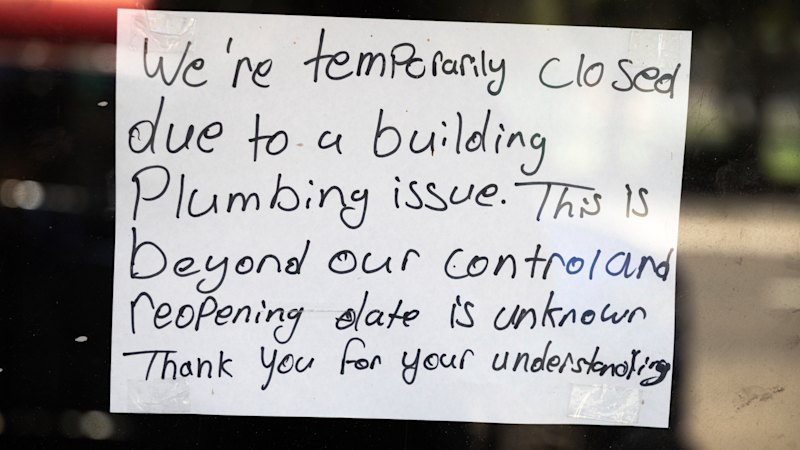 We're temporarily closed
due to a building
Plumbing issue. This is
beyond our control and
reopening date is unknown
Thank you for your understanding